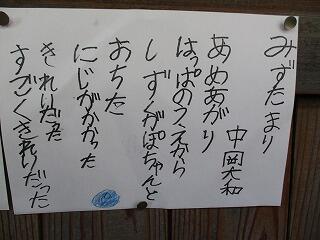 みずたまり
中岡大和
あめあがり
はっぱのうえから
しずくがぽちゃんと
おちた
にじがかかった
きれいだった
すごくきれいだった